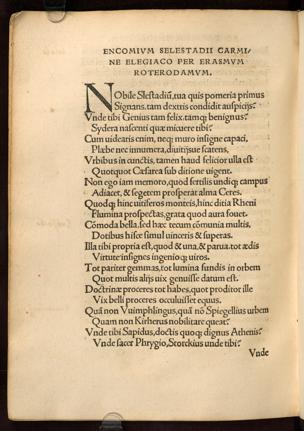 ENCOMIVM SELESTADII CARMI/
NE ELEGIACO PER ERASMVM
ROTERODAMVM.
NObile Slestadiũ, tua quis pomeria primus
Signans, tam dextris condidit auspicijs?
Vnde tibi Genius tam felix, tamq; benignus?
Sydera nascenti quæ micuere tibi?
Cum uidearis enim, necq; muro insigne capaci,
Plæbe nec innumera, diuitijsue scatens,
Vrbibus in cunctis, tamen haud felicior ulla est
Quotquot Cæsarea sub ditione uigent.
Non ego iam memoro, quod fertilis undicq; campus
Adiacet, & segetem prosperat alma Ceres.
Quodq; hinc uitiferos monteis, hinc ditia Rheni
Flumina prospectas, grata quod aura fouet.
Cõmoda bella, sed hæc tecum cõmunia multis,
Dotibus hisce simul uinceris & superas.
Illa tibi propria est, quod & una, & parua, tot ædis
Virtute insignes ingenioq; uiros.
Tot pariter gemmas, tot lumina fundis in orbem
Quot multis alijs uix genuisse datum est.
Doctrinæ proceres tot habes, quot proditor ille
Vix belli proceres occuluisset equus.
Quã non Vuimphlingus, quã nõ Spiegellius urbem
Quam non Kirherus nobilitare queat?
Vnde tibi Sapidus, doctis quoq; dignus Athenis?
Vnde sacer Phrygio, Storckius unde tibi?
Vnde